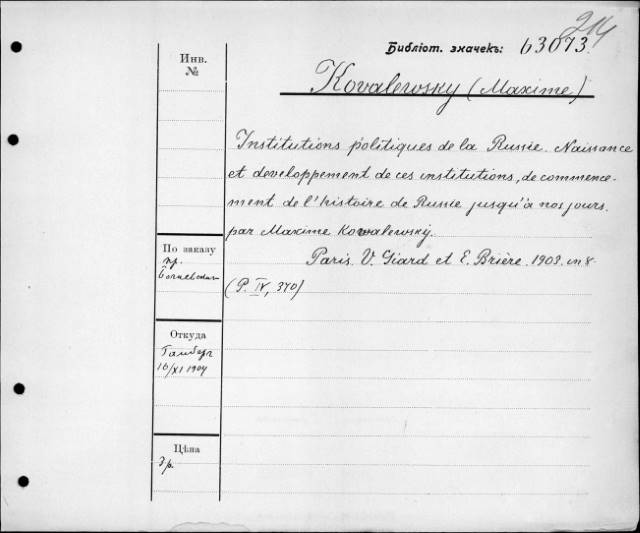 214
Библіот. значекъ: 63073.
Инв.
№
Kovalewsky (Maxime)
Institutions politiques de la Russie. Naissance
et developpement de ces institutions, de commence-
ment de l'histoire de Russie jusqu'à nos jours.
par Maxime Kowalewsky.
Paris. V. Giard et E. Brière. 1903. in 8
(P. IV, 370)
По заказу
пр.
Откуда
16/XI 1904
Цѣна
3 р.